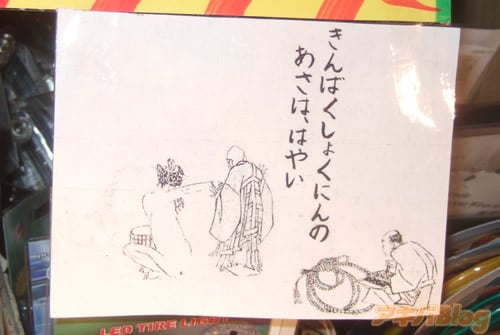 きんばくしょくにんの
あさは、はやい
LED TIRE LIGHT
アキバBlog